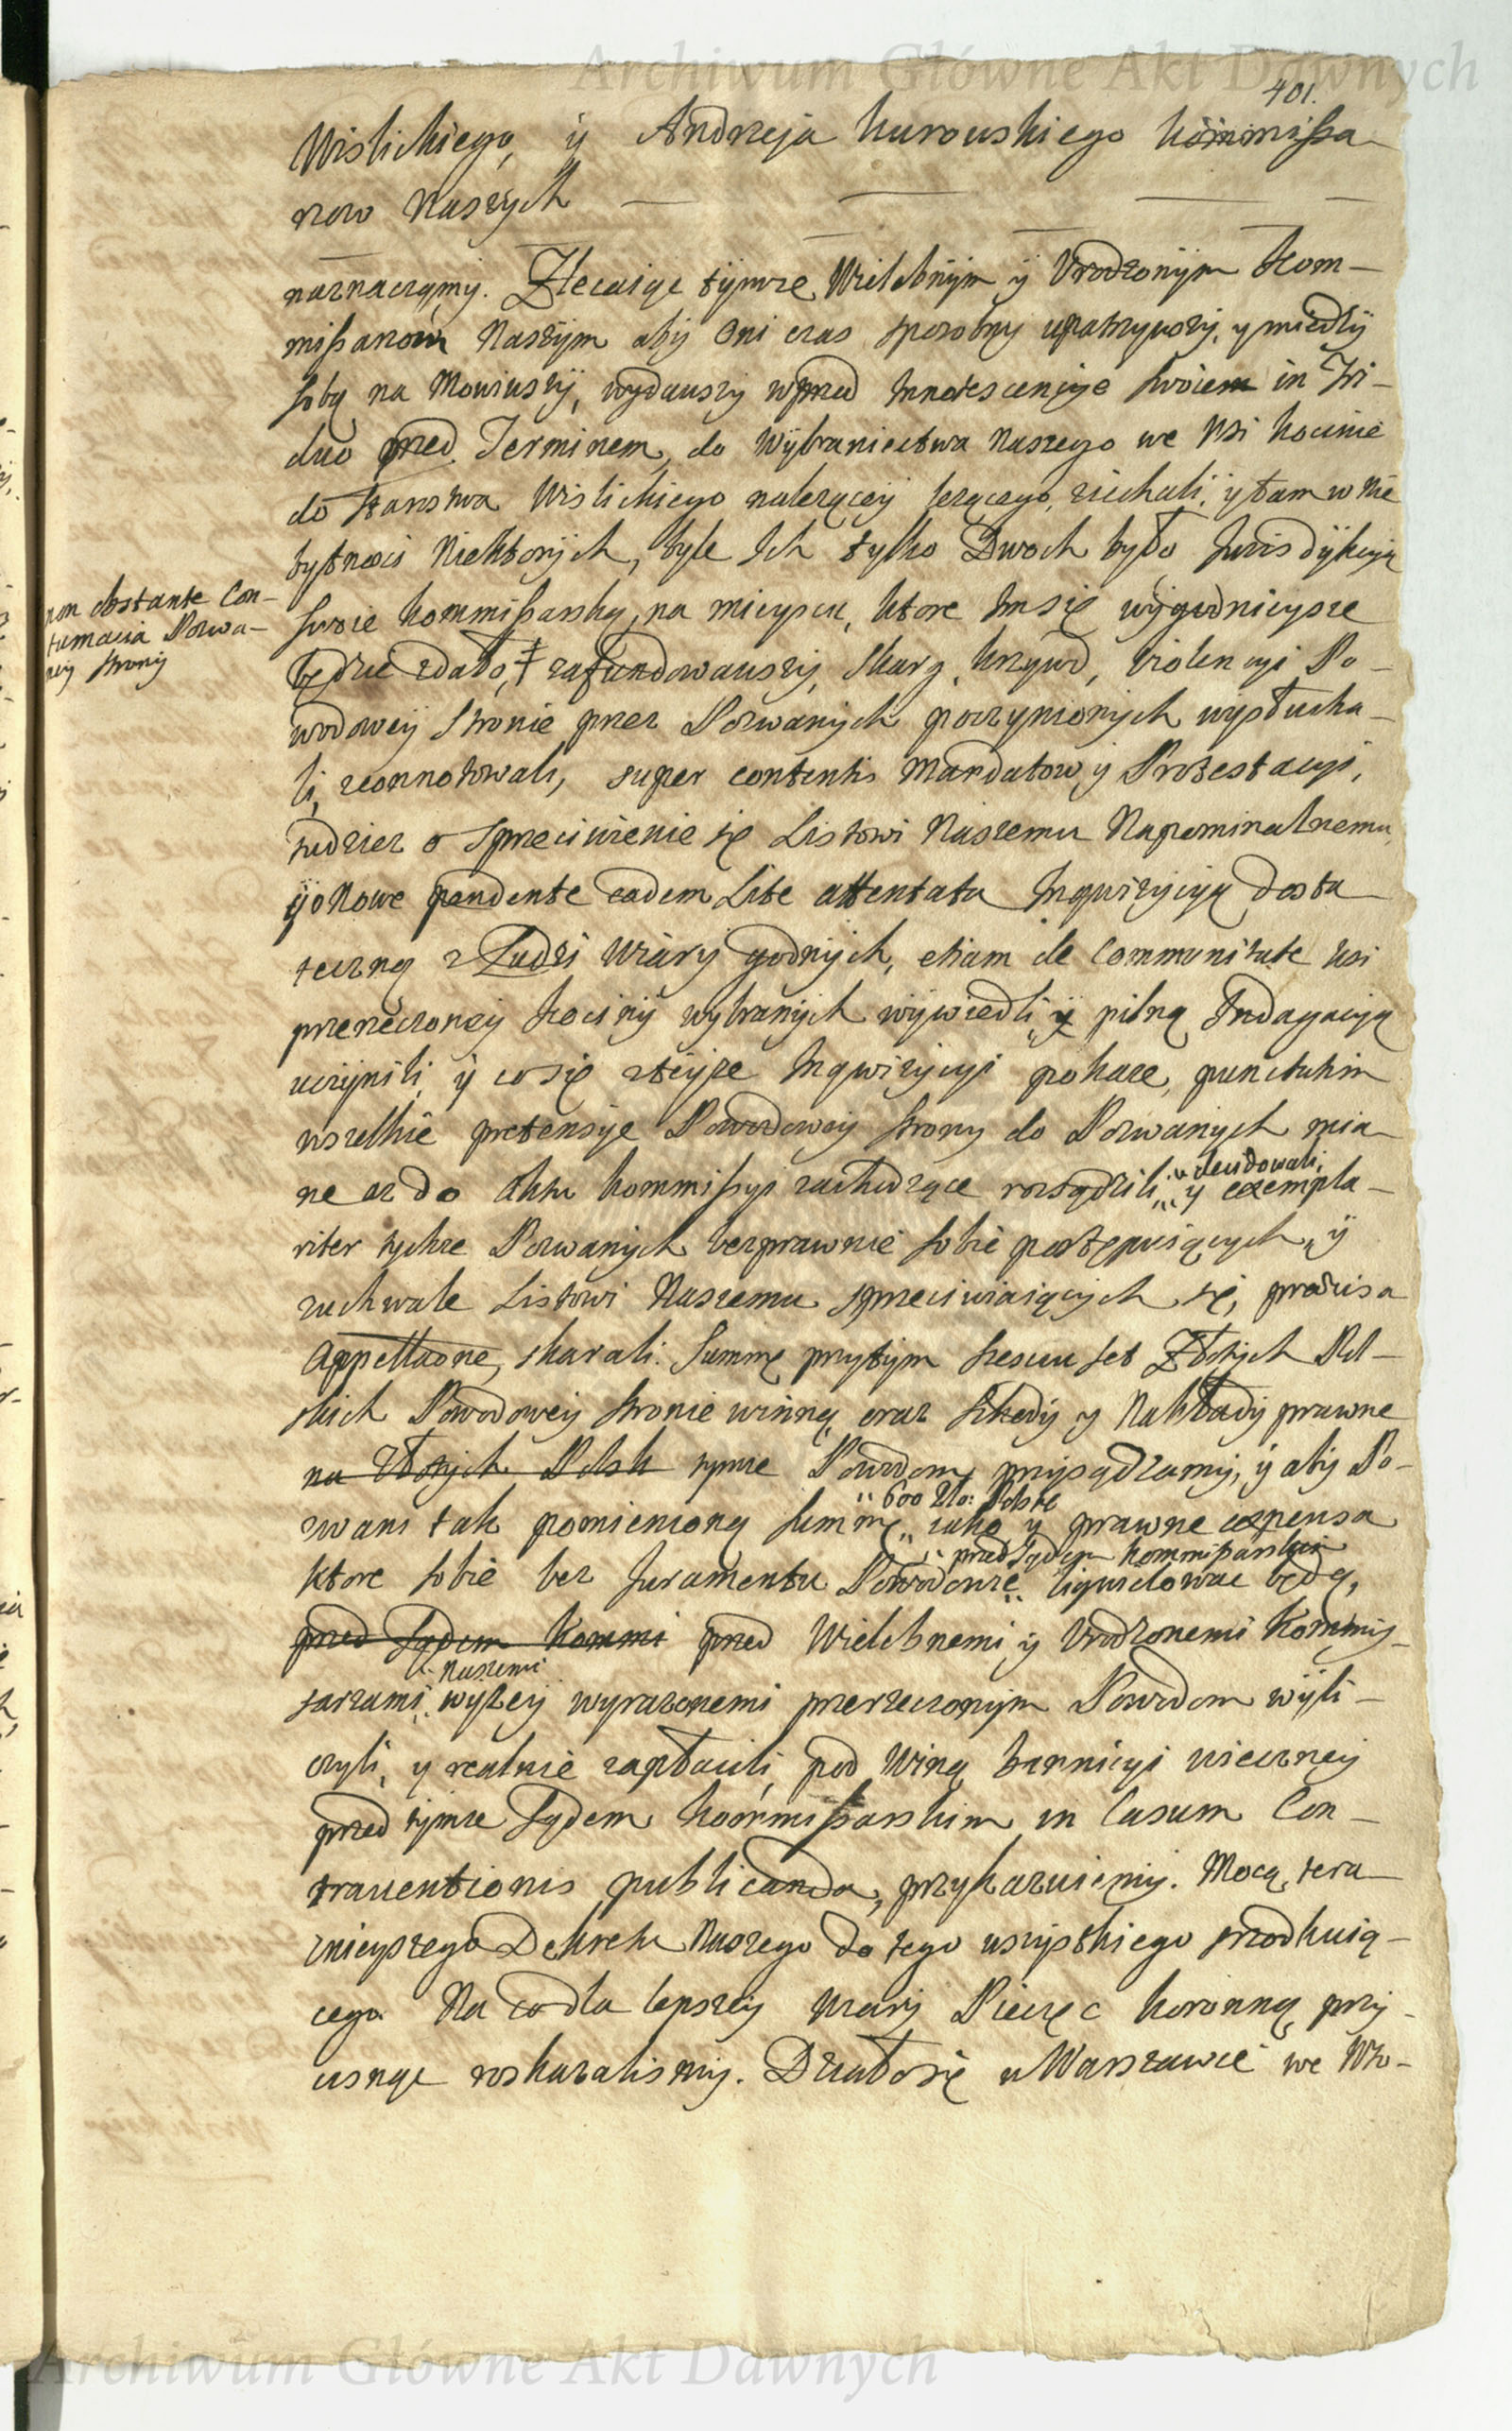 Archiwum Główne Akt Dawnych
401.
Wislickiego, ÿ Andrzeja Kurowskiego Kommißa-
rzow Naszych
naznaczamÿ. Zlecaiąc tÿmże Wielebnÿm ÿ Urodzonÿm Kom-
mißarzom Naszÿm abÿ Oni czas sposobny upatrzywszÿ, y międzÿ
sobą na Mowiwszÿ, wydawszÿ wprzod Innotescencÿe swoiem in Tri-
duo przed Terminem, do Wÿbraniectwa Naszego we Wsi Kocinie
do Starostwa Wislickiego należącej leżącego, ziechali, ÿ tam w Nie
bytnosci Niektorÿch, byle Ich tylko Dwoch było Jurisdÿkcÿą
Swoie Kommißarską, na mieyscu, ktore Im się wÿgodnieysze
non obstante Con-
tumacia Pozwa-
neÿ stronÿ
będzie zdało, ǂ zafundowawszÿ, skarg, krzywd, violencyi Po-
wodoweÿ stronie przez Pozwanÿch poczynionÿch wysłucha-
li, zconnotowali, super contentis Mandatow ÿ Protestacyi,
tudziez o sprzeciwienie się Listowi Naszemu Napominalnemu,
ÿ o Nowe pendente eadem Lite attentata Inqwizÿcyą dosta
teczną z Ludzi Wiarÿ godnÿch, etiam de Communitate wsi
przerzeczoneÿ Kocinÿ wybranÿch wÿwiedli, ÿ pilną Indagacyą
uczÿnili, ÿ co się zteÿże Inqwizÿcyi pokaże, punctatim
wszelkie pretensÿe Powodoweÿ Strony do Pozwanÿch mia-
ne az do Aktu Kommißyi zachodzące rozsądzili, y exempla-
" decidowali,
riter tychże Pozwanÿch bezprawnie sobie postępuiących, ÿ
zuchwale Listowi Naszemu sprzeciwiaiącÿch się, præcisa
Appellaone, skarali. Summę przytÿm szesciu set Złotÿch Pol-
skich Powodoweÿ stronie winną, oraz szkodÿ y Nakładÿ prawne
na Złotych Polsk tymże Powodom przÿsądzamÿ, ÿ abÿ Po-
zwani tak pomienioną summę, iako y prawne expensa
" 600 Zło: Polske
ktore sobie bez Juramentu Powodowie liquidowac będą,
" przed Sądem Kommißarskim
przed Sądem Kommi przed Wielebnemi, ÿ Urodzonemi Kommis-
sarzami wyżeÿ wyrażonemi przerzeczonÿm Powodom wÿli-
" Naszemi
czyli, y realnie zapłacili, pod Winą bannicyi wiecznej
przed tÿmże Sądem Kommißarskim in Casum Con-
traventionis publicanda, przykazuiemÿ. Mocą tera-
znieyszego Dekretu Naszego do tego wszystkiego srzodkuią-
cego. Na co dla lepszeÿ Wiarÿ Pieczęc Koronną przÿ-
cisnąc roskazalismÿ. Działosię w Warszawie we Wto-
Archiwum Główne Akt Dawnych